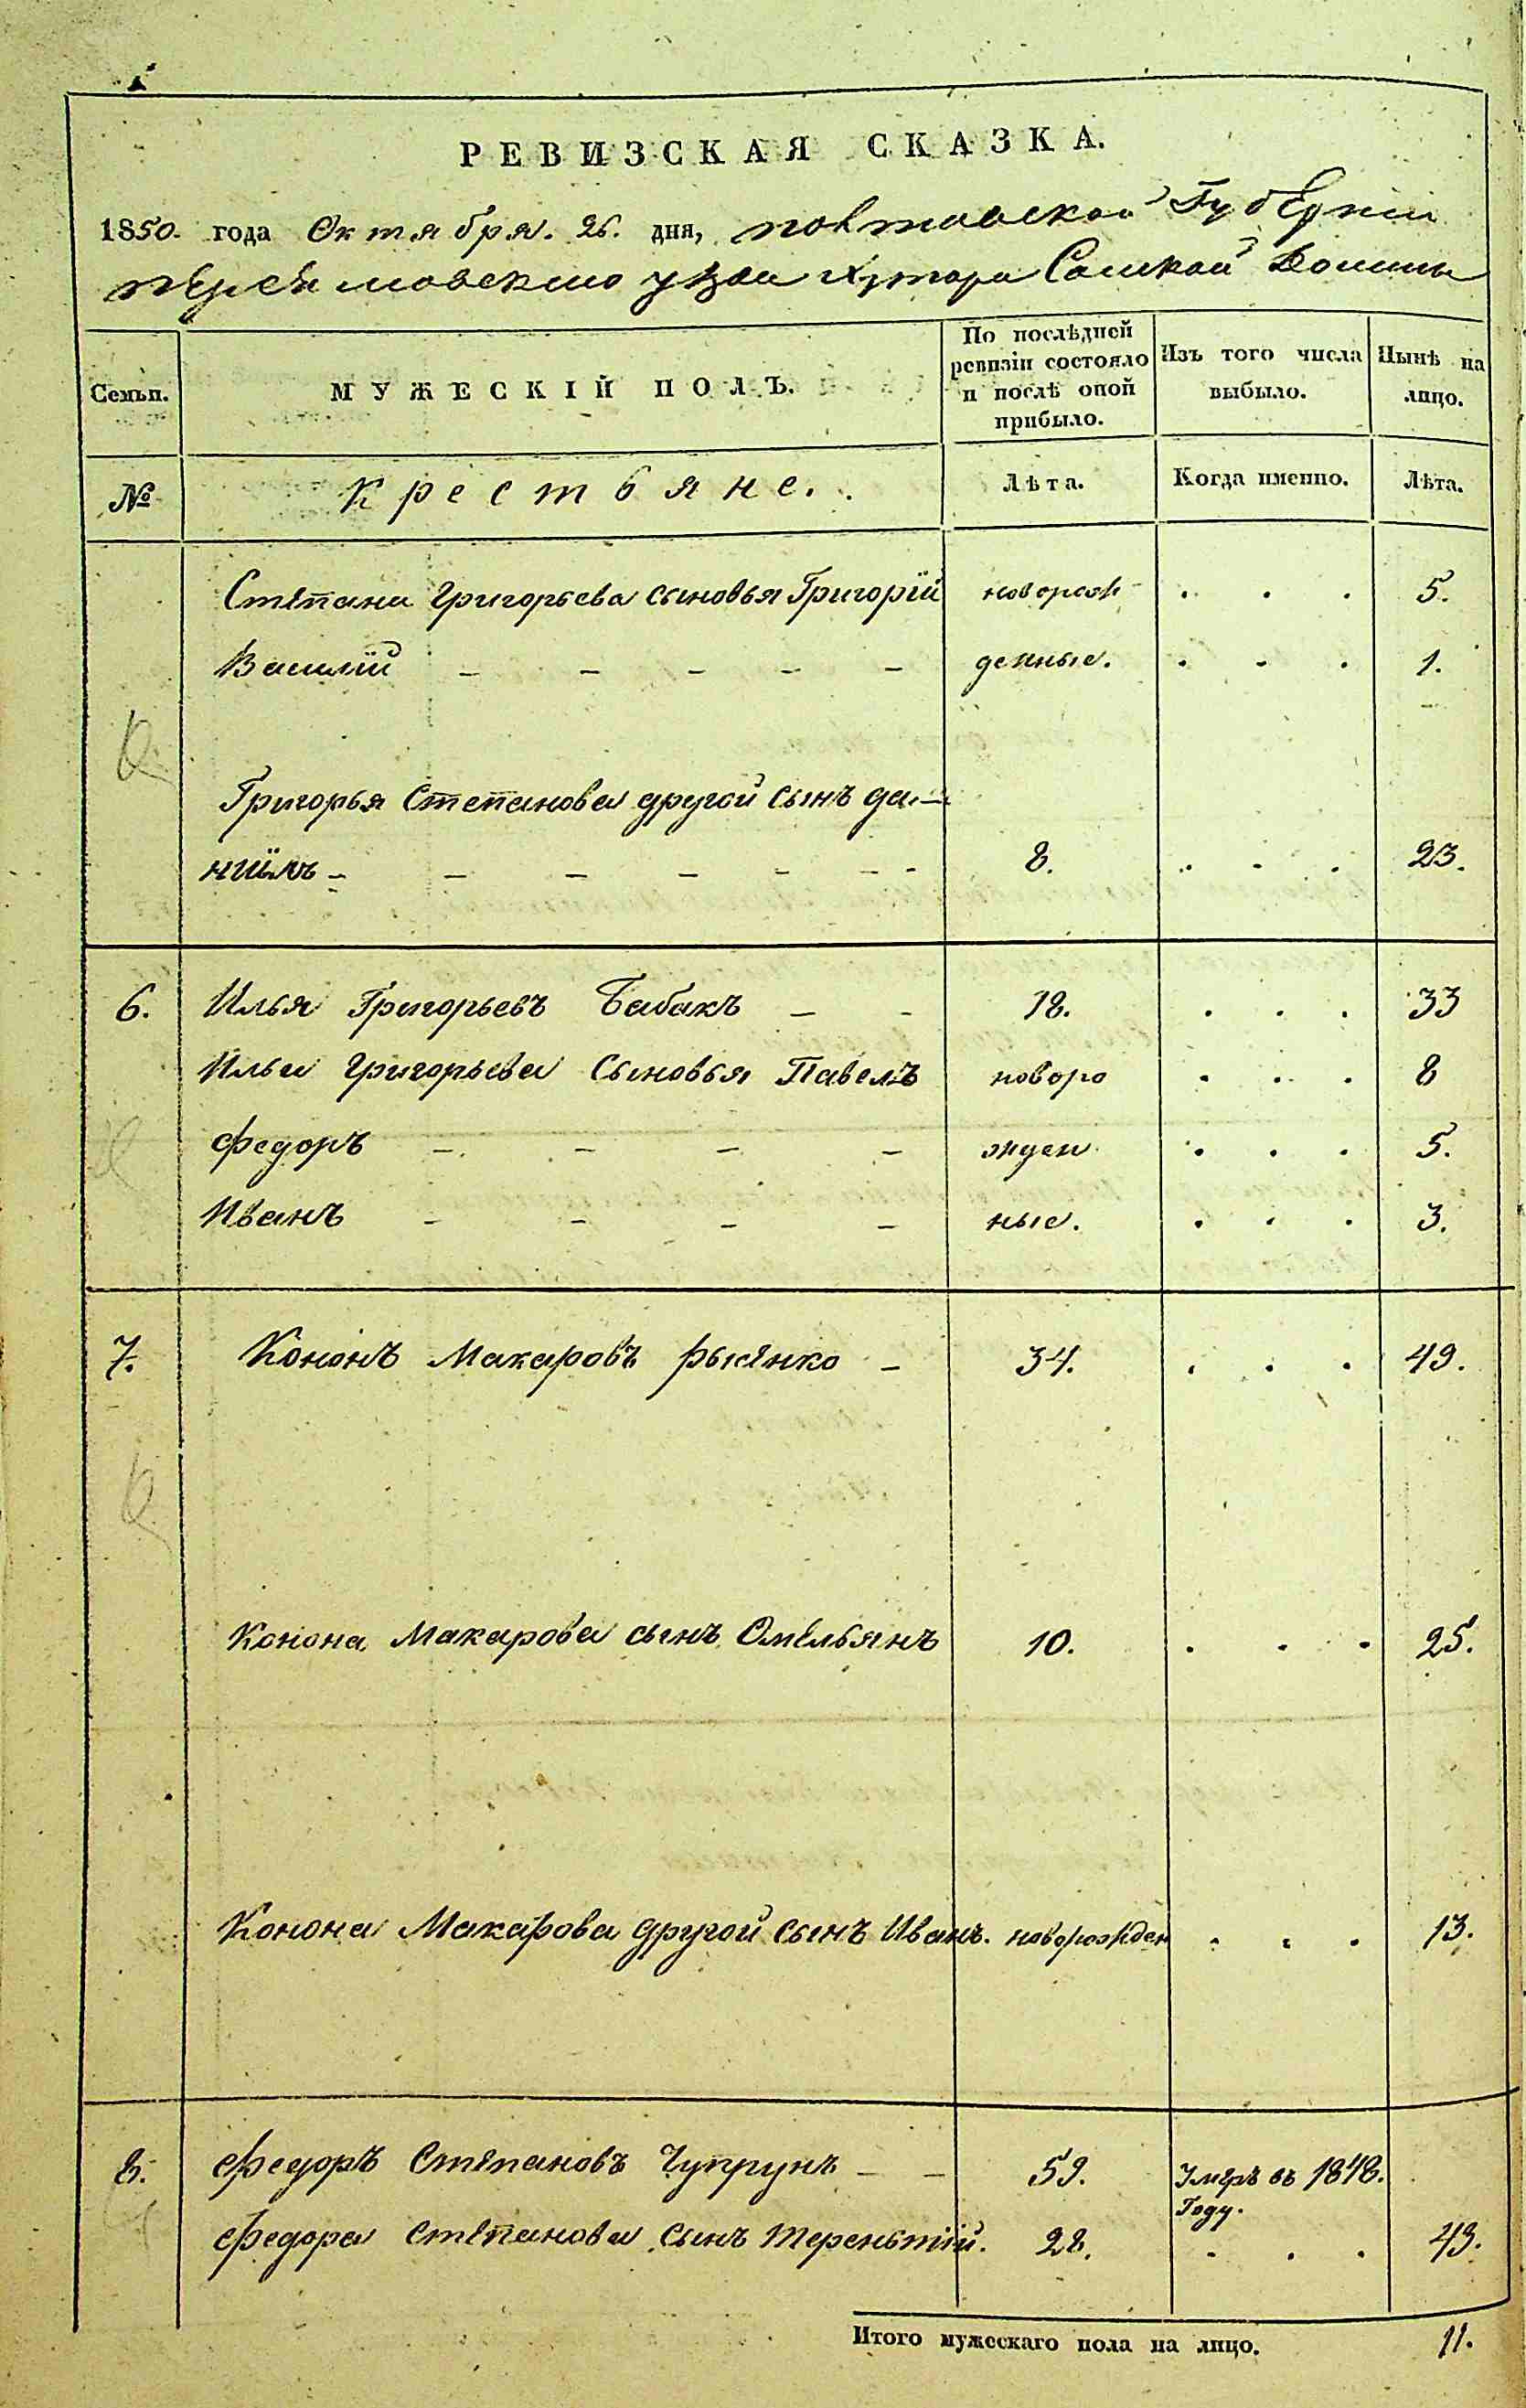 РЕВИЗСКАЯ СКАЗКА.
1850. года Октября. 26. дня, Полтавской Губерніи
уѣзда Хутора Долины
Семьи.
МУЖЕСКІЙ ПОЛЪ.
По послѣдней ревизіи состояло и послѣ оной прибыло.
Изъ того числа выбыло.
Нынѣ на лицо.
№
Крестьяне.
Лѣта.
Когда именно.
Лѣта.
Степана Григорьева сыновья Григорій новорож- . . . 5.
Василій - - - - - денные. . . . 1.
Григорья Степанова другой сынъ Да-
ніилъ - - - - - - - 8. . . . 23.
6. Илья Григорьевъ Бабакъ - - 18. . . . 33
Ильи Григорьева Сыновья Павелъ новоро . . . 8
Федоръ - - - - жден . . . 5.
Иванъ - - - - ные. . . . 3.
7. Кононъ Макаровъ Рысенко - 34. . . . 49.
Конона Макарова сынъ Омельянъ 10. . . . 25.
Конона Макарова другой сынъ Иванъ. новорожден . . . 13.
8. Федоръ Степановъ Чупрунъ - - 59. Умеръ въ 1848.
Году.
Федора Степанова сынъ Терентій. 28. . . . 43.
Итого мужескаго пола на лицо. 11.